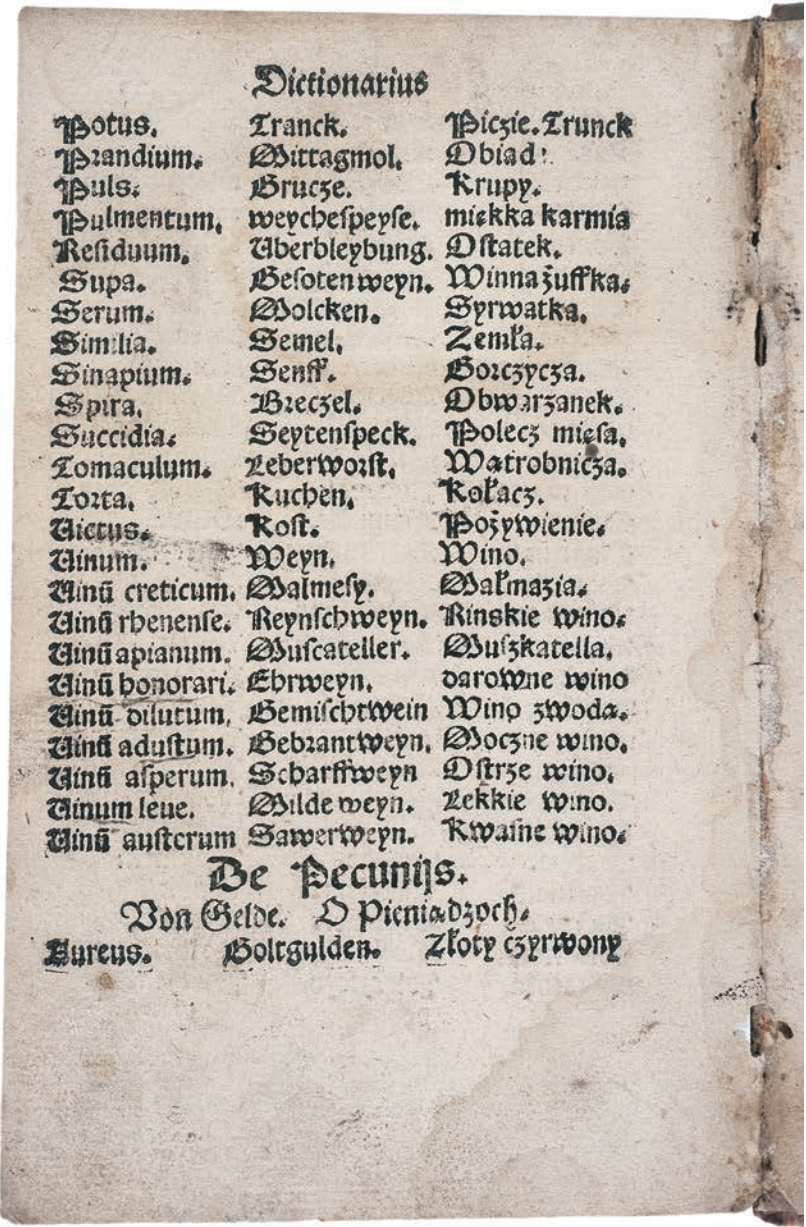 Dictionarius
Potus. Tranck. Piczie. Trunck
Prandium. Mittagmol. Obiad.
Puls. Grucze. Krupy.
Pulmentum. weychespeyse. miękka karmia
Residuum. Uberbleybung. Ostatek.
Supa. Gesoten weyn. Winna żuffka.
Serum. Molcken. Syrwatka.
Similia. Semel. Zemła.
Sinapium. Senff. Gorczycza.
Spira. Breczel. Obwarzanek.
Succidia. Seytenspeck. Polecz mięsa.
Tomaculum. Leberworst. Wątrobnicza.
Torta. Kuchen. Kołacz.
Uictus. Kost. Pożywienie.
Uinum. Weyn. Wino.
Uinū creticum. Malmesy. Małmazia.
Uinū rhenense. Reynschweyn. Rinskie wino.
Uinū apianum. Muscateller. Muszkatella.
Uinū honorari. Ehrweyn. darowne wino
Uinū dilutum. Gemischtwein Wino zwodą.
Uinū adustum. Gebrantweyn. Moczne wino.
Uinū asperum. Scharffweyn Ostrze wino.
Uinum leue. Milde weyn. Lekkie wino.
Uinū austerum Sawerweyn. Kwasne wino.
De Pecunijs.
Von Gelde. O Pieniądzoch.
Aureus. Goltgulden. Złoty czyrwony